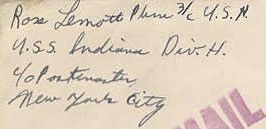 Rose Lemott Phm 3/c U.S.N.
U.S.S. Indiana Div. H.
c/o Postmaster
New York City
MAIL